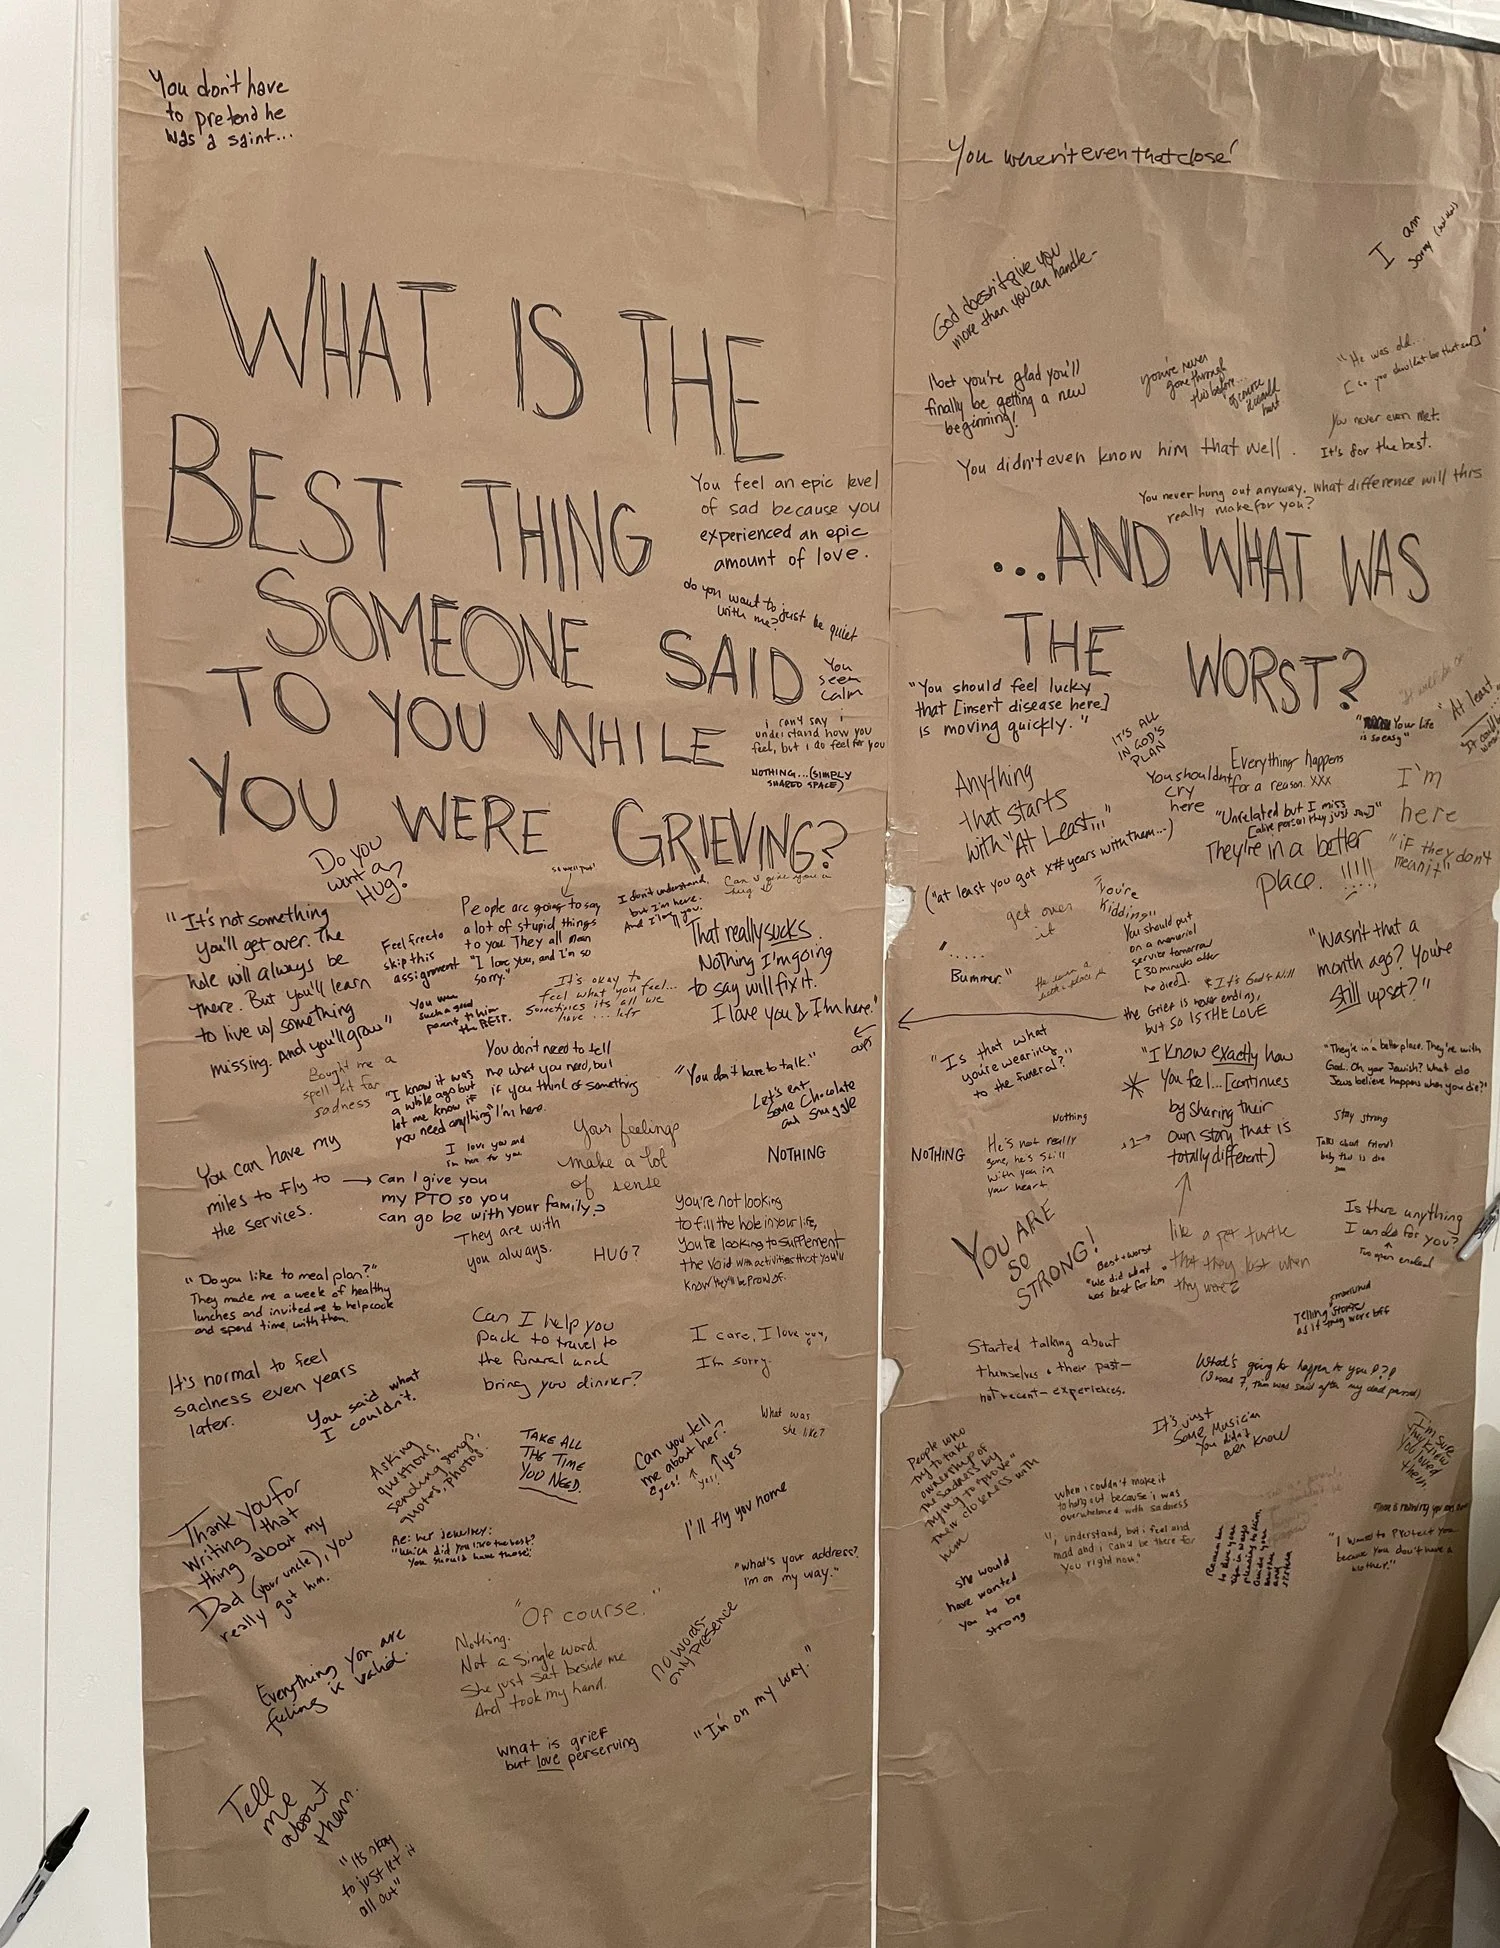 You don't have
to pretend he
was a saint...
WHAT IS THE
BEST THING
SOMEONE SAID
TO YOU WHILE
YOU WERE GRIEVING?
You feel an epic level
of sad because you
experienced an epic
amount of love.
do you want to just be quiet
with me?
You
seem
calm
i can't say i
understand how you
feel, but i do feel for you
NOTHING...(SIMPLY
SHARED SPACE)
Do you
want a
HUG?
"It's not something
you'll get over. The
hole will always be
there. But you'll learn
to live w/ something
missing. And you'll grow"
Feel free to
skip this
assignment
People are going to say
a lot of stupid things
to you. They all mean
"I love you, and I'm so
sorry."
I don't understand,
but I'm here.
And I love you.
Can I give you a
hug
That really sucks.
Nothing I'm going
to say will fix it.
I love you & I'm here."
You were
such a good
parent to him
the BEST.
It's okay to
feel what you feel...
Sometimes its all we
have ... left
Bought me a
spell kit for
sadness
"I know it was
a while ago but
let me know if
you need anything"
You don't need to tell
me what you need, but
if you think of something
I'm here.
"You don't have to talk."
Let's eat
some chocolate
and snuggle
I love you and
I'm here for you
Your feelings
make a lot
of sense
NOTHING
You can have my
miles to fly to
the services.
→ Can I give you
my PTO so you
can go be with your family?
They are with
you always.
HUG?
You're not looking
to fill the hole in your life,
you're looking to supplement
the void with activities that you'll
know they'll be proud of.
"Do you like to meal plan?"
They made me a week of healthy
lunches and invited me to help cook
and spend time, with them.
Can I help you
pack to travel to
the funeral and
bring you dinner?
I care, I love you,
I'm sorry.
It's normal to feel
sadness even years
later.
You said what
I couldn't.
Asking
questions,
sending songs,
quotes, photos.
TAKE ALL
THE TIME
YOU NEED.
Can you tell
me about her?
yes! ↑ yes! ↑ yes
What was
she like?
Thank you for
writing that
thing about my
Dad (your uncle), you
really got him.
Re: her jewelry:
"Which did you love the best?
You should have those."
I'll fly you home
"what's your address?
I'm on my way."
"Of course."
Nothing.
Not a single word
She just sat beside me
And took my hand.
no words-
only presence
Everything you are
feeling is valid.
"I'm on my way."
what is grief
but love perserving
Tell
me
about
them.
"Its okay
to just let it
all out"
You weren't even that close!
I am
sorry
God doesn't give you
more than you can handle-
I bet you're glad you'll
finally be getting a new
beginning!
you've never
gone through
this before...
of course
it would
hurt
"He was old...
[so you shouldn't be that sad]"
You never even met.
It's for the best.
You didn't even know him that well.
You never hung out anyway, what difference will this
really make for you?
...AND WHAT WAS
THE WORST?
"You should feel lucky
that [insert disease here]
is moving quickly."
IT'S ALL
IN GOD'S
PLAN
Your life
is so easy"
"At least...
Anything
that starts
with "At Least..."
("at least you got x# years with them...)
You shouldn't
cry
here
Everything happens
for a reason. xxx
"Unrelated but I miss
[alive person they just saw]"
I'm
here
"if they don't
mean it"
They're in a better
place. !!!!!
get over
it
"You're
kidding"
You should put
on a memorial
service tomorrow
[30 minutes after
he died].
".....
Bummer."
"Wasn't that a
month ago? You're
still upset?"
*It's God's Will
the Grief is never ending,
but SO IS THE LOVE
"Is that what
you're wearing
to the funeral?"
"I know exactly how
you feel... [continues
by sharing their
own story that is
totally different)
"They're in a better place. They're with
God. Oh your Jewish? What do
Jews believe happens when you die?"
Nothing
NOTHING
He's not really
gone, he's still
with you in
your heart
Stay strong
YOU ARE
SO
STRONG!
Best + worst
"We did what
was best for him"
like a pet turtle
that they lost when
they were 2
Is there anything
I can do for you?
Too open ended
Started talking about
themselves & their past-
not recent- experiences.
Telling
as if they were BFF
What's going to happen to you?!?
(I was 7, this was said after my dad passed)
It's just
some musician
you didn't
even know
I'm sure
they knew
you loved
them.
People who
try to take
ownership of
the sadness by
trying to "prove"
their closeness with
him
When i couldn't make it
to hang out because i was
overwhelmed with sadness
"i understand, but i feel and
mad and i can't be there for
you right now."
"I want to protect you
because you don't have a
mother."
she would
have wanted
you to be
strong